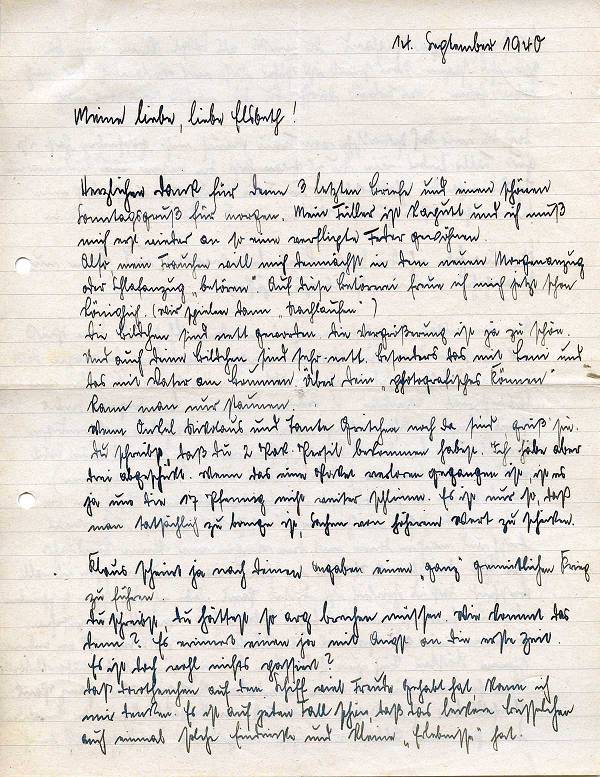 14. September 1940
Meine liebe, liebe Elsbeth!
Herzlichen Dank für deine 3 letzten Briefe und einen schönen
Sonntagsgruß für morgen. Mein Füller ist kaputt und ich muß
mich erst wieder an so eine verflixte Feder gewöhnen.
Also mein Frauchen will mich demnächst in dem neuen Morgenanzug
oder Schlafanzug "betören". Auf diese Betörerei freue ich mich jetzt schon
königlich. (Wir spielen dann "Nachlaufen")
Die Bildchen sind nett geworden. Die Vergrößerung ist ja zu schön.
Und auch deine Bildchen sind sehr nett. Besonders das mit Leni und
das mit Vater am Brunnen. Über dein "photografisches Können"
kann man nur staunen.
Wenn Onkel Nikolaus und Tante Gretchen noch da sind grüß sie.
Du schreibst, daß du 2 Pak. Persil bekommen habest. Ich habe aber
drei abgeschickt. Wenn das eine Paket verloren gegangen ist, ist es
ja um die 17 Pfennig nicht weiter schlimm. Es ist nur so, daß
man tatsächlich zu bange ist, Sachen von höherem Wert zu schicken.
Klaus scheint ja nach deinen Angaben einen "ganz" gemütlichen Krieg
zu führen.
Du schreibst, du hättest so arg brechen müssen. Wie kommt das
denn? Es erinnert einen ja mit Angst an die erste Zeit.
Es ist doch wohl nichts passiert?
Daß Dorthenchen auf dem Schiff viel Freude gehabt hat kann ich
mir denken. Es ist auf jeden Fall schön, daß das
auch einmal solche Eindrücke und kleine "Erlebnisse" hat.